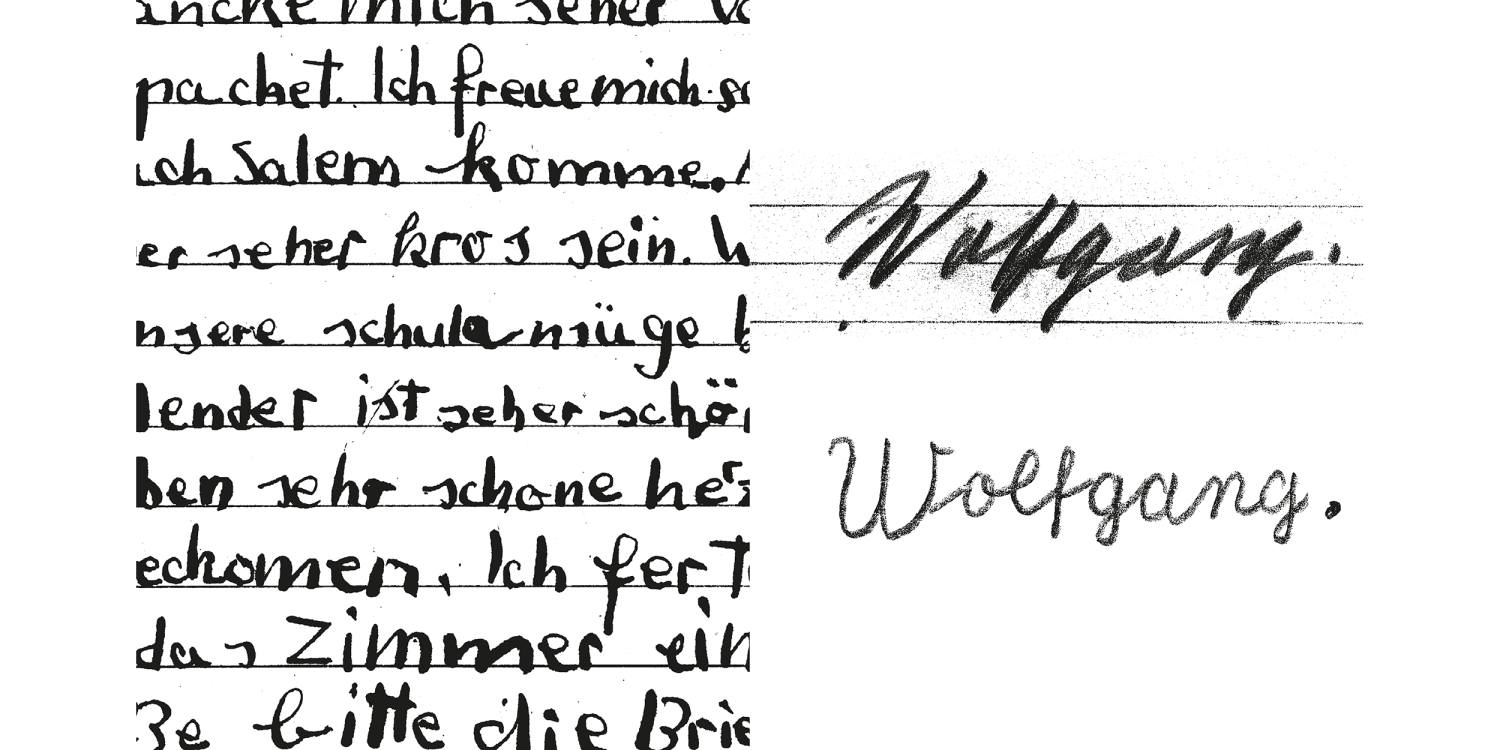 mich seher
pachet. Ich freue mich
ich Salem komme.
er seher kros sein.
nsere schule müge
lender ist seher schö
ben sehr schöne
eckomen, Ich fer
das Zimmer ein
Be bitte die Brie
Wolfgang.
Wolfgang.